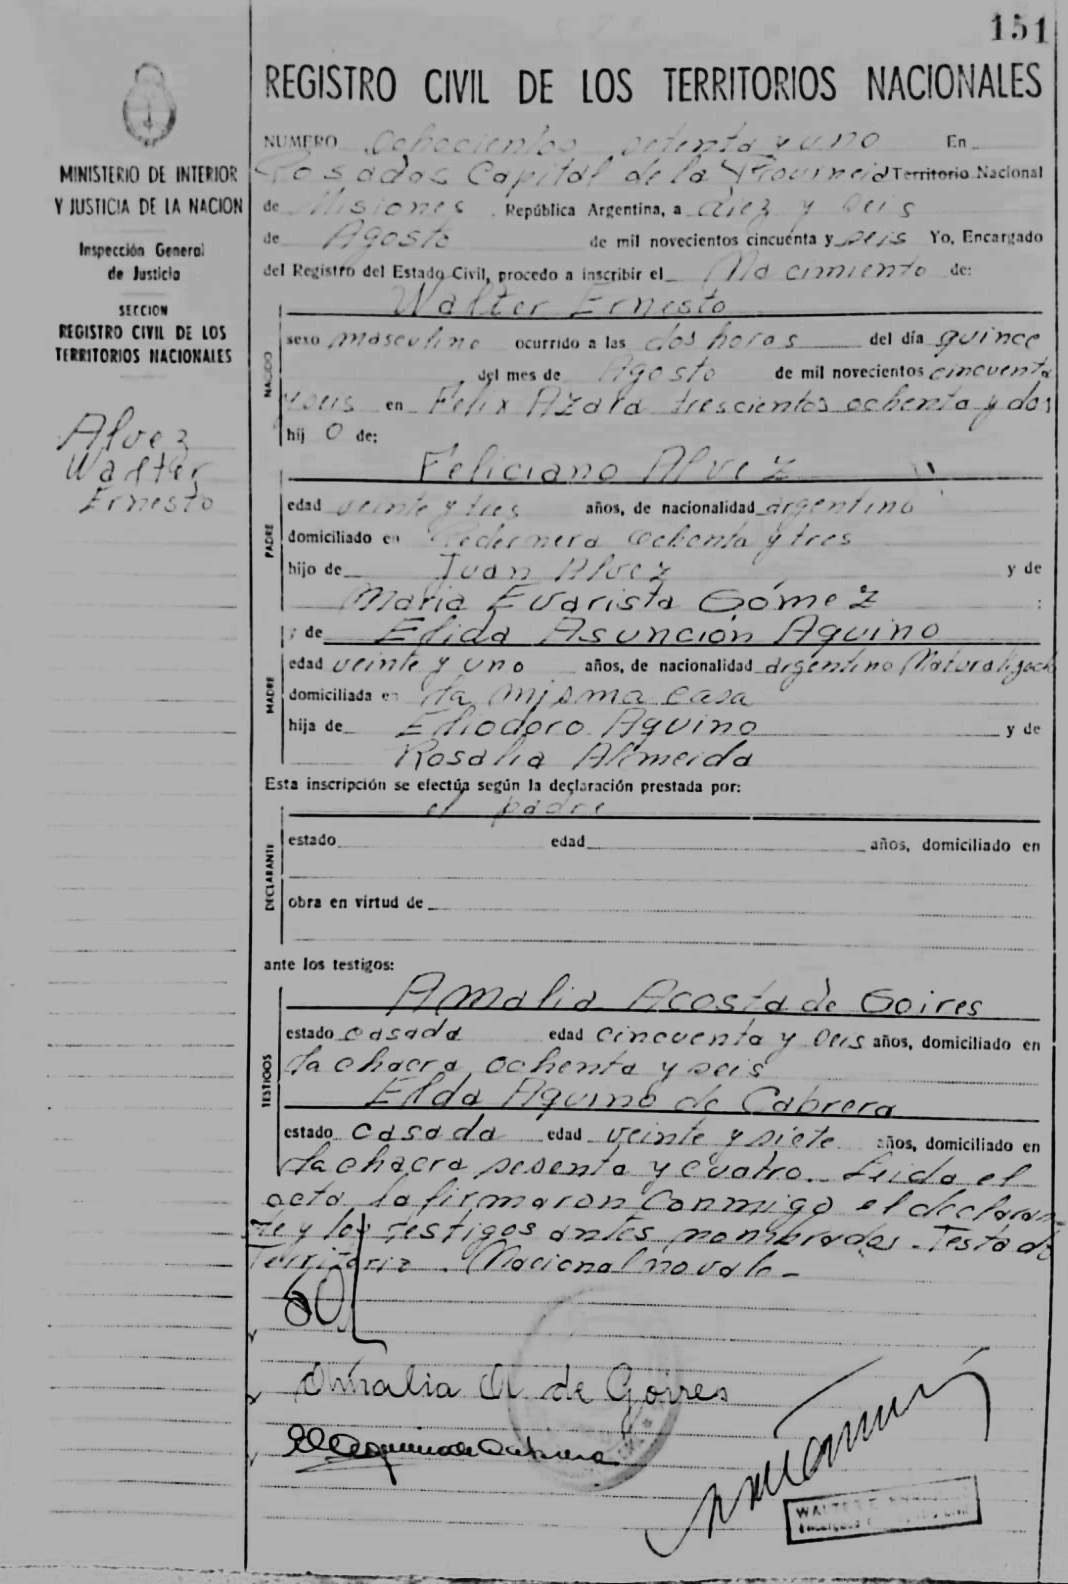 151
REGISTRO CIVIL DE LOS TERRITORIOS NACIONALES
MINISTERIO DE INTERIOR
Y JUSTICIA DE LA NACION
Inspección General
de Justicia
SECCION
REGISTRO CIVIL DE LOS
TERRITORIOS NACIONALES
Alvez
Walter
Ernesto
NUMERO ochocientos setenta y uno En
Posadas Capital de la Provincia Territorio Nacional
de Misiones. República Argentina, a diez y seis
de Agosto de mil novecientos cincuenta y seis Yo, Encargado
del Registro del Estado Civil, procedo a inscribir el Nacimiento de:
Walter Ernesto
NACIDO
sexo masculino ocurrido a las dos horas del día quince
del mes de Agosto de mil novecientos cincuenta
y seis en Felix Azara trescientos ochenta y dos
hij o de:
Feliciano Alvez
PADRE
edad veinte y tres años, de nacionalidad argentino
domiciliado en Pedernera ochenta y tres
hijo de Juan Alvez y de
Maria Evarista Gómez ;
y de Elida Asunción Aquino
MADRE
edad veinte y uno años, de nacionalidad argentino
domiciliada en la misma casa
hija de Eliodoro Aquino y de
Rosalia Almeida
Esta inscripción se efectúa según la declaración prestada por:
el padre
DECLARANTE
estado edad años, domiciliado en
obra en virtud de
ante los testigos:
Amalia Acosta de Goires
TESTIGOS
estado casada edad cincuenta y seis años, domiciliado en
la chacra ochenta y seis
Elda Aquino de Cabrera
estado casada edad veinte y siete años, domiciliado en
la chacra sesenta y cuatro. Leida el
acta, la firmaron conmigo el declaran-
te y los testigos antes nombrados. Testado
Territorio. Nacional no vale -
Amalia A de Goires
WALTER